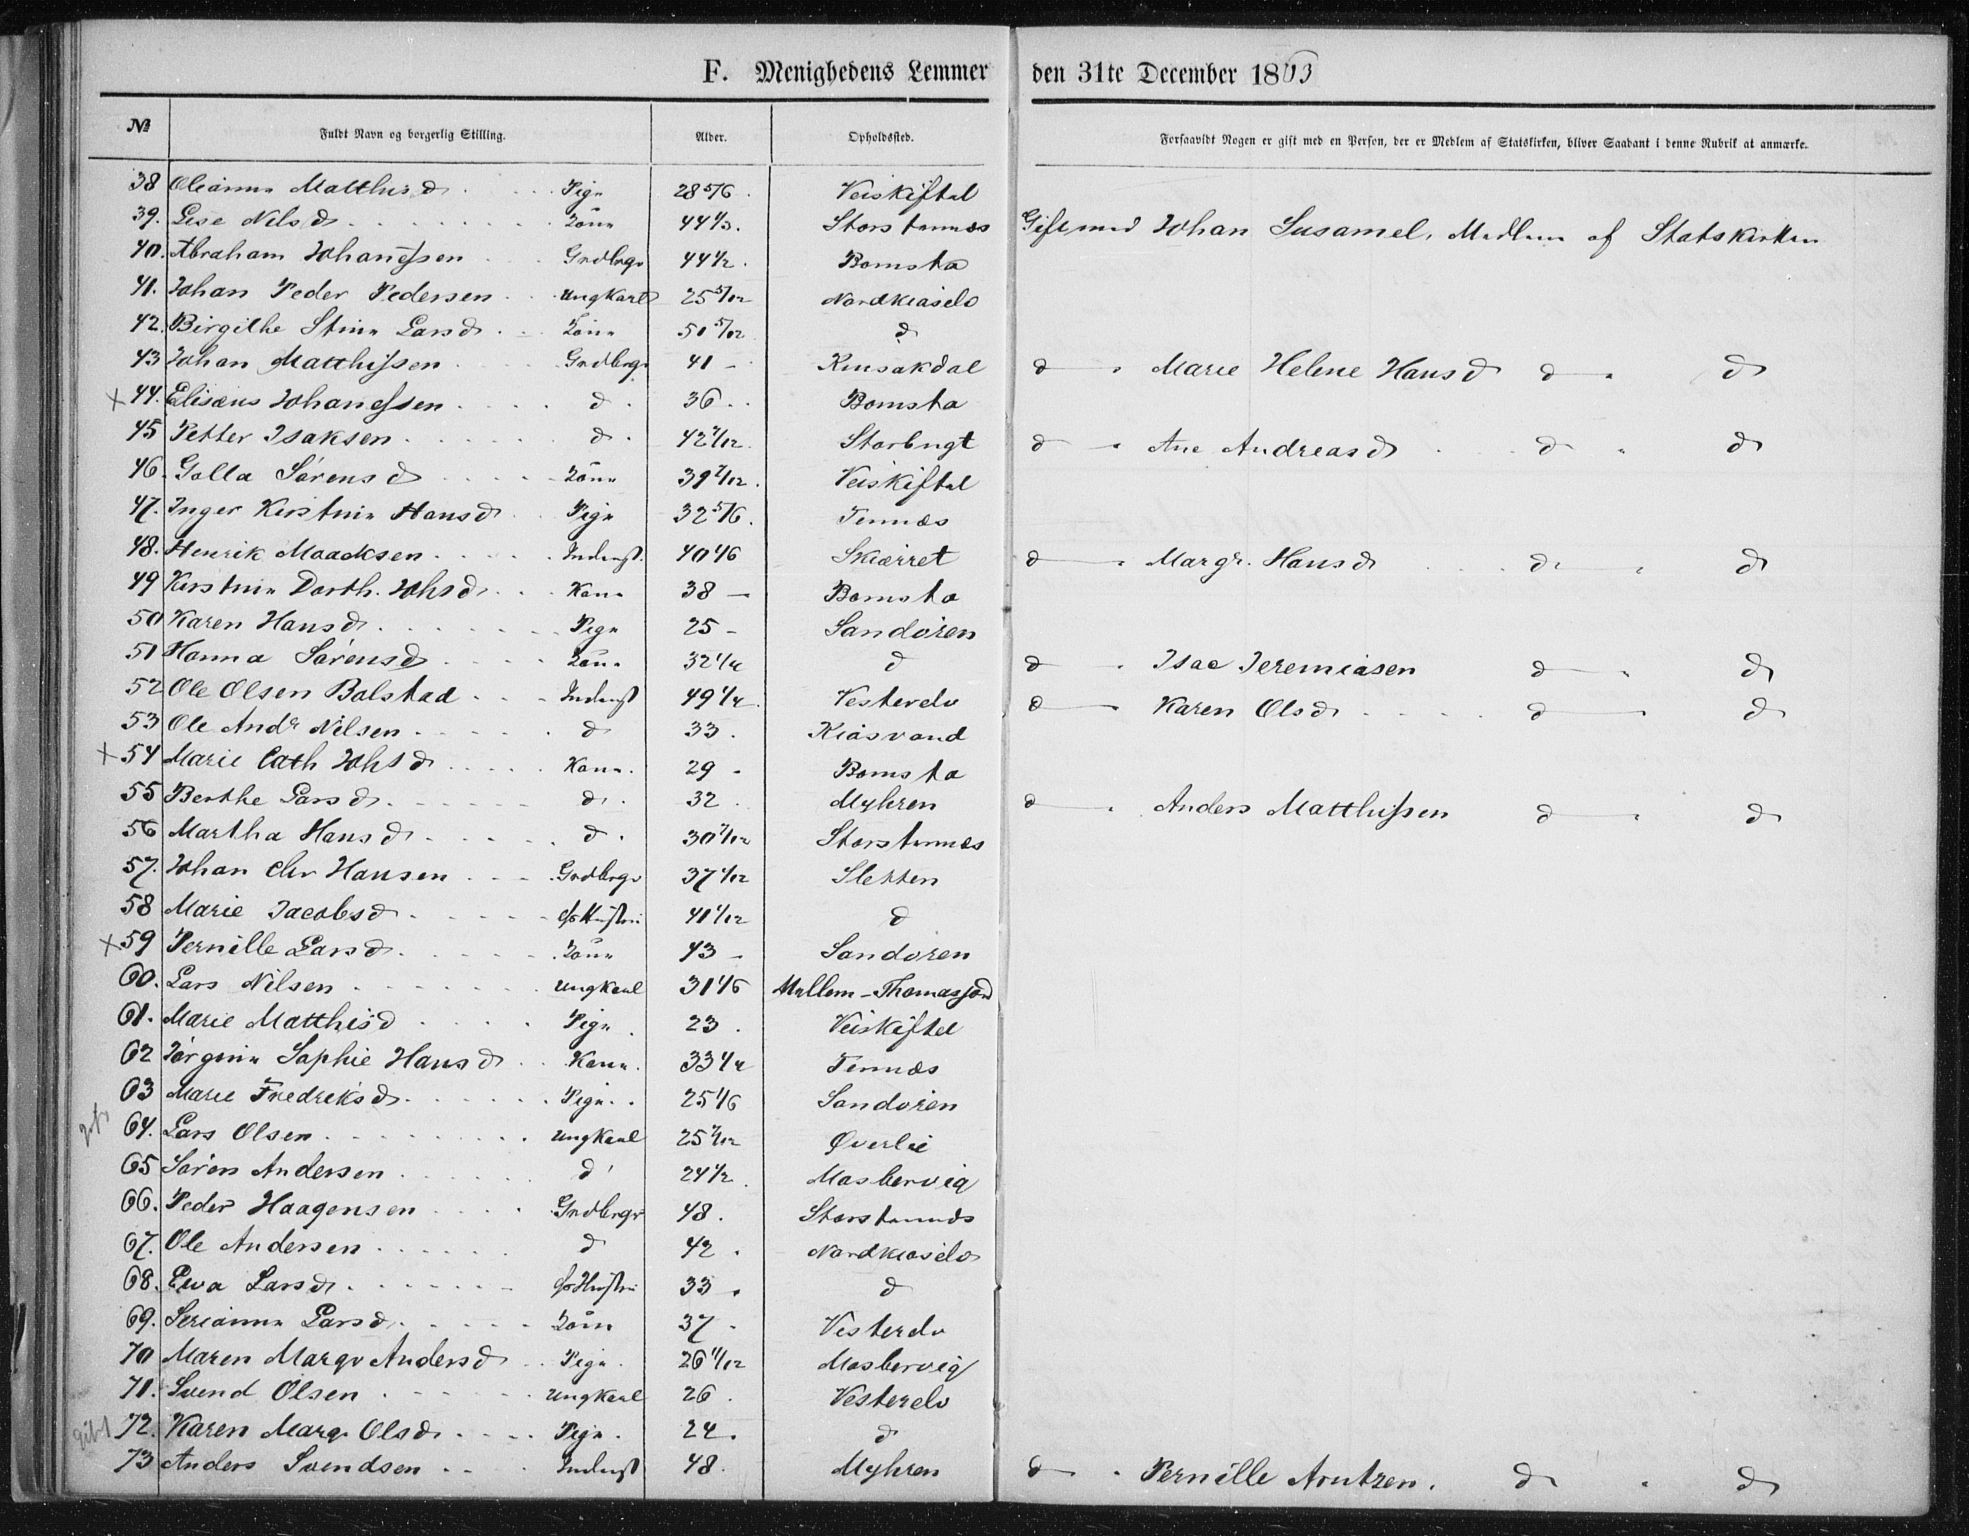 F. Menighedens Lemmer den 31te December 1863
№ Fuldt Navn og borgerlig Stilling. Alder. Opholdssted. Forsaavidt Nogen er gift med en Person, der er Medlem af Statskirken, bliver Saadant i denne Rubrik at anmærke.
38 Oleanna Matthisd Pige 28 5/6 Veiskiftet
39. Lise Nilsd Kone 44 1/3 Storstennes Gift med Johan Susamel, Medlem af Statskirken
40. Abraham Johanesen Grdbrgr 44 1/2 Bomsta
41. Johan Peder Pedersen Ungkarl 25 5/12 Nordkiøselv
42. Birgithe Stina Larsd Kone 50 5/12 d
43 Johan Matthisen Grdbrgr 41 - Kinsakdal d " Marie Helene Hansd d " d
x 44. Elisæus Johanesen d 36 Bomsta
45 Petter Isaksen d 42 7/12 Storbugt d " Ane Andreasd d " d
46. Golla Sørensd Kone 39 7/12 Veiskiftet
47. Inger Kirstina Hansd Pige 32 5/6 Tennæs
48. Henrik Maacksen Inderst 40 1/6 Skiærret d " Margr. Hansd d " d
49 Kirstina Dorth. Johsd Kone 38 - Bomsta
50 Karen Hansd Pige 25 - Sandøren
51 Hanna Sørensd Kone 32 1/4 d d " Isac Jeremiasen d " d
52 Ole Olsen Bolstad Inderst 49 1/4 Vesterelv d " Karen Olsd d " d
53 Ole Andr Nilsen d 33. Kiosvand
x 54 Marie Cath Johsd Kone 29 - Bomsta
55 Berthe Larsd d 32 Myhren d " Anders Matthisen d " d
56 Martha Hansd d 30 7/12 Storstennes
57. Johan Chr Hansen Grdbrgr 37 1/12 Sletten
58 Marie Jacobsd Hustru 41 1/12 d
x 59 Pernille Larsd Kone 43 - Sandøren
60. Lars Nilsen Ungkarl 31 1/6 Mellem-Thomasjord
61. Marie Matthisd Pige 23 Veiskiftet
62 Jørgina Sophie Hansd Kone 33 1/4 Tennæs
63 Marie Fredriksd Pige 25 1/6 Sandøren
64. Lars Olsen Ungkarl 25 7/12 Øverlie
65 Søren Andersen d 24 1/2 Mosbervig
66. Peder Haagensen Grdbrgr 48. Storstennes
67. Ole Andersen d 42. Nordkiøselv
68. Ewa Larsd Hustru 33. d
69. Serianna Larsd Kone 37 - Vesterelv
70 Maren Margr Andersd Pige 26 11/12 Mosbervig
71. Svend Olsen Ungkarl 26. Vesterelv
72. Karen Margr Olsd Pige 24. d
73 Anders Svendsen Inderst 48. Myhren d " Pernille Arntzen. d " d